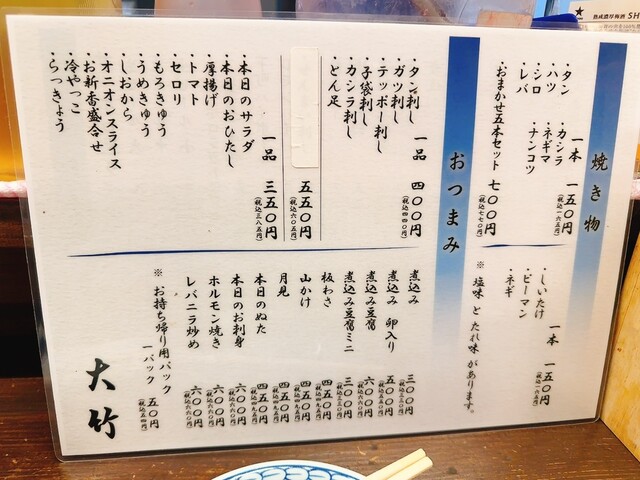 焼き物
一本 一五〇円
(税込一六五円)
・タン
・ハツ
・シロ
・レバ
・カシラ
・ネギマ
・ナンコツ
・おまかせ五本セット 七〇〇円
(税込七七〇円)
一本 一五〇円
(税込一六五円)
・しいたけ
・ピーマン
・ネギ
※ 塩味 と たれ味 が あります。
おつまみ
一品 四〇〇円
(税込四四〇円)
・タン刺し
・ガツ刺し
・テッポー刺し
・子袋刺し
・カシラ刺し
・とん足
五五〇円
(税込六〇五円)
一品 三五〇円
(税込三八五円)
・本日のサラダ
・本日のおひたし
・厚揚げ
・トマト
・セロリ
・もろきゅう
・うめきゅう
・しおから
・オニオンスライス
・お新香盛合せ
・冷やっこ
・らっきょう
煮込み 三〇〇円
(税込三三〇円)
煮込み 卵入り
煮込み豆腐 六〇〇円
(税込六六〇円)
煮込み豆腐ミニ 三〇〇円
(税込三三〇円)
板わさ 四五〇円
(税込四九五円)
山かけ 四五〇円
(税込四九五円)
月見 四五〇円
(税込四九五円)
本日のぬた 四五〇円
(税込四九五円)
本日のお刺身 六〇〇円
(税込六六〇円)
ホルモン焼き 六〇〇円
(税込六六〇円)
レバニラ炒め 六〇〇円
(税込六六〇円)
※ お持ち帰り用パック
一パック 五〇円
大竹